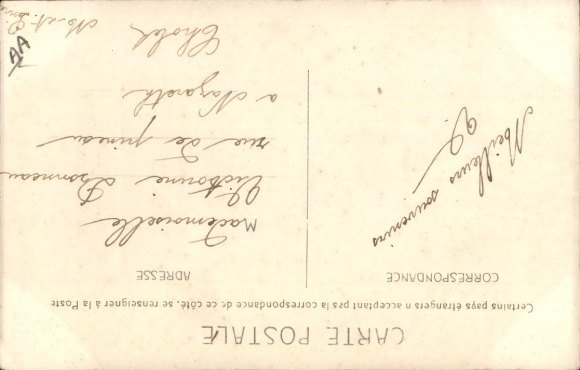 CARTE POSTALE
Certains pays étrangers n acceptant pas la correspondance de ce côté, se renseigner à la Poste
CORRESPONDANCE
Meilleurs souvenirs
ADRESSE
Mademoiselle
Victorine
rue de
a Nazareth
Cholet
AA